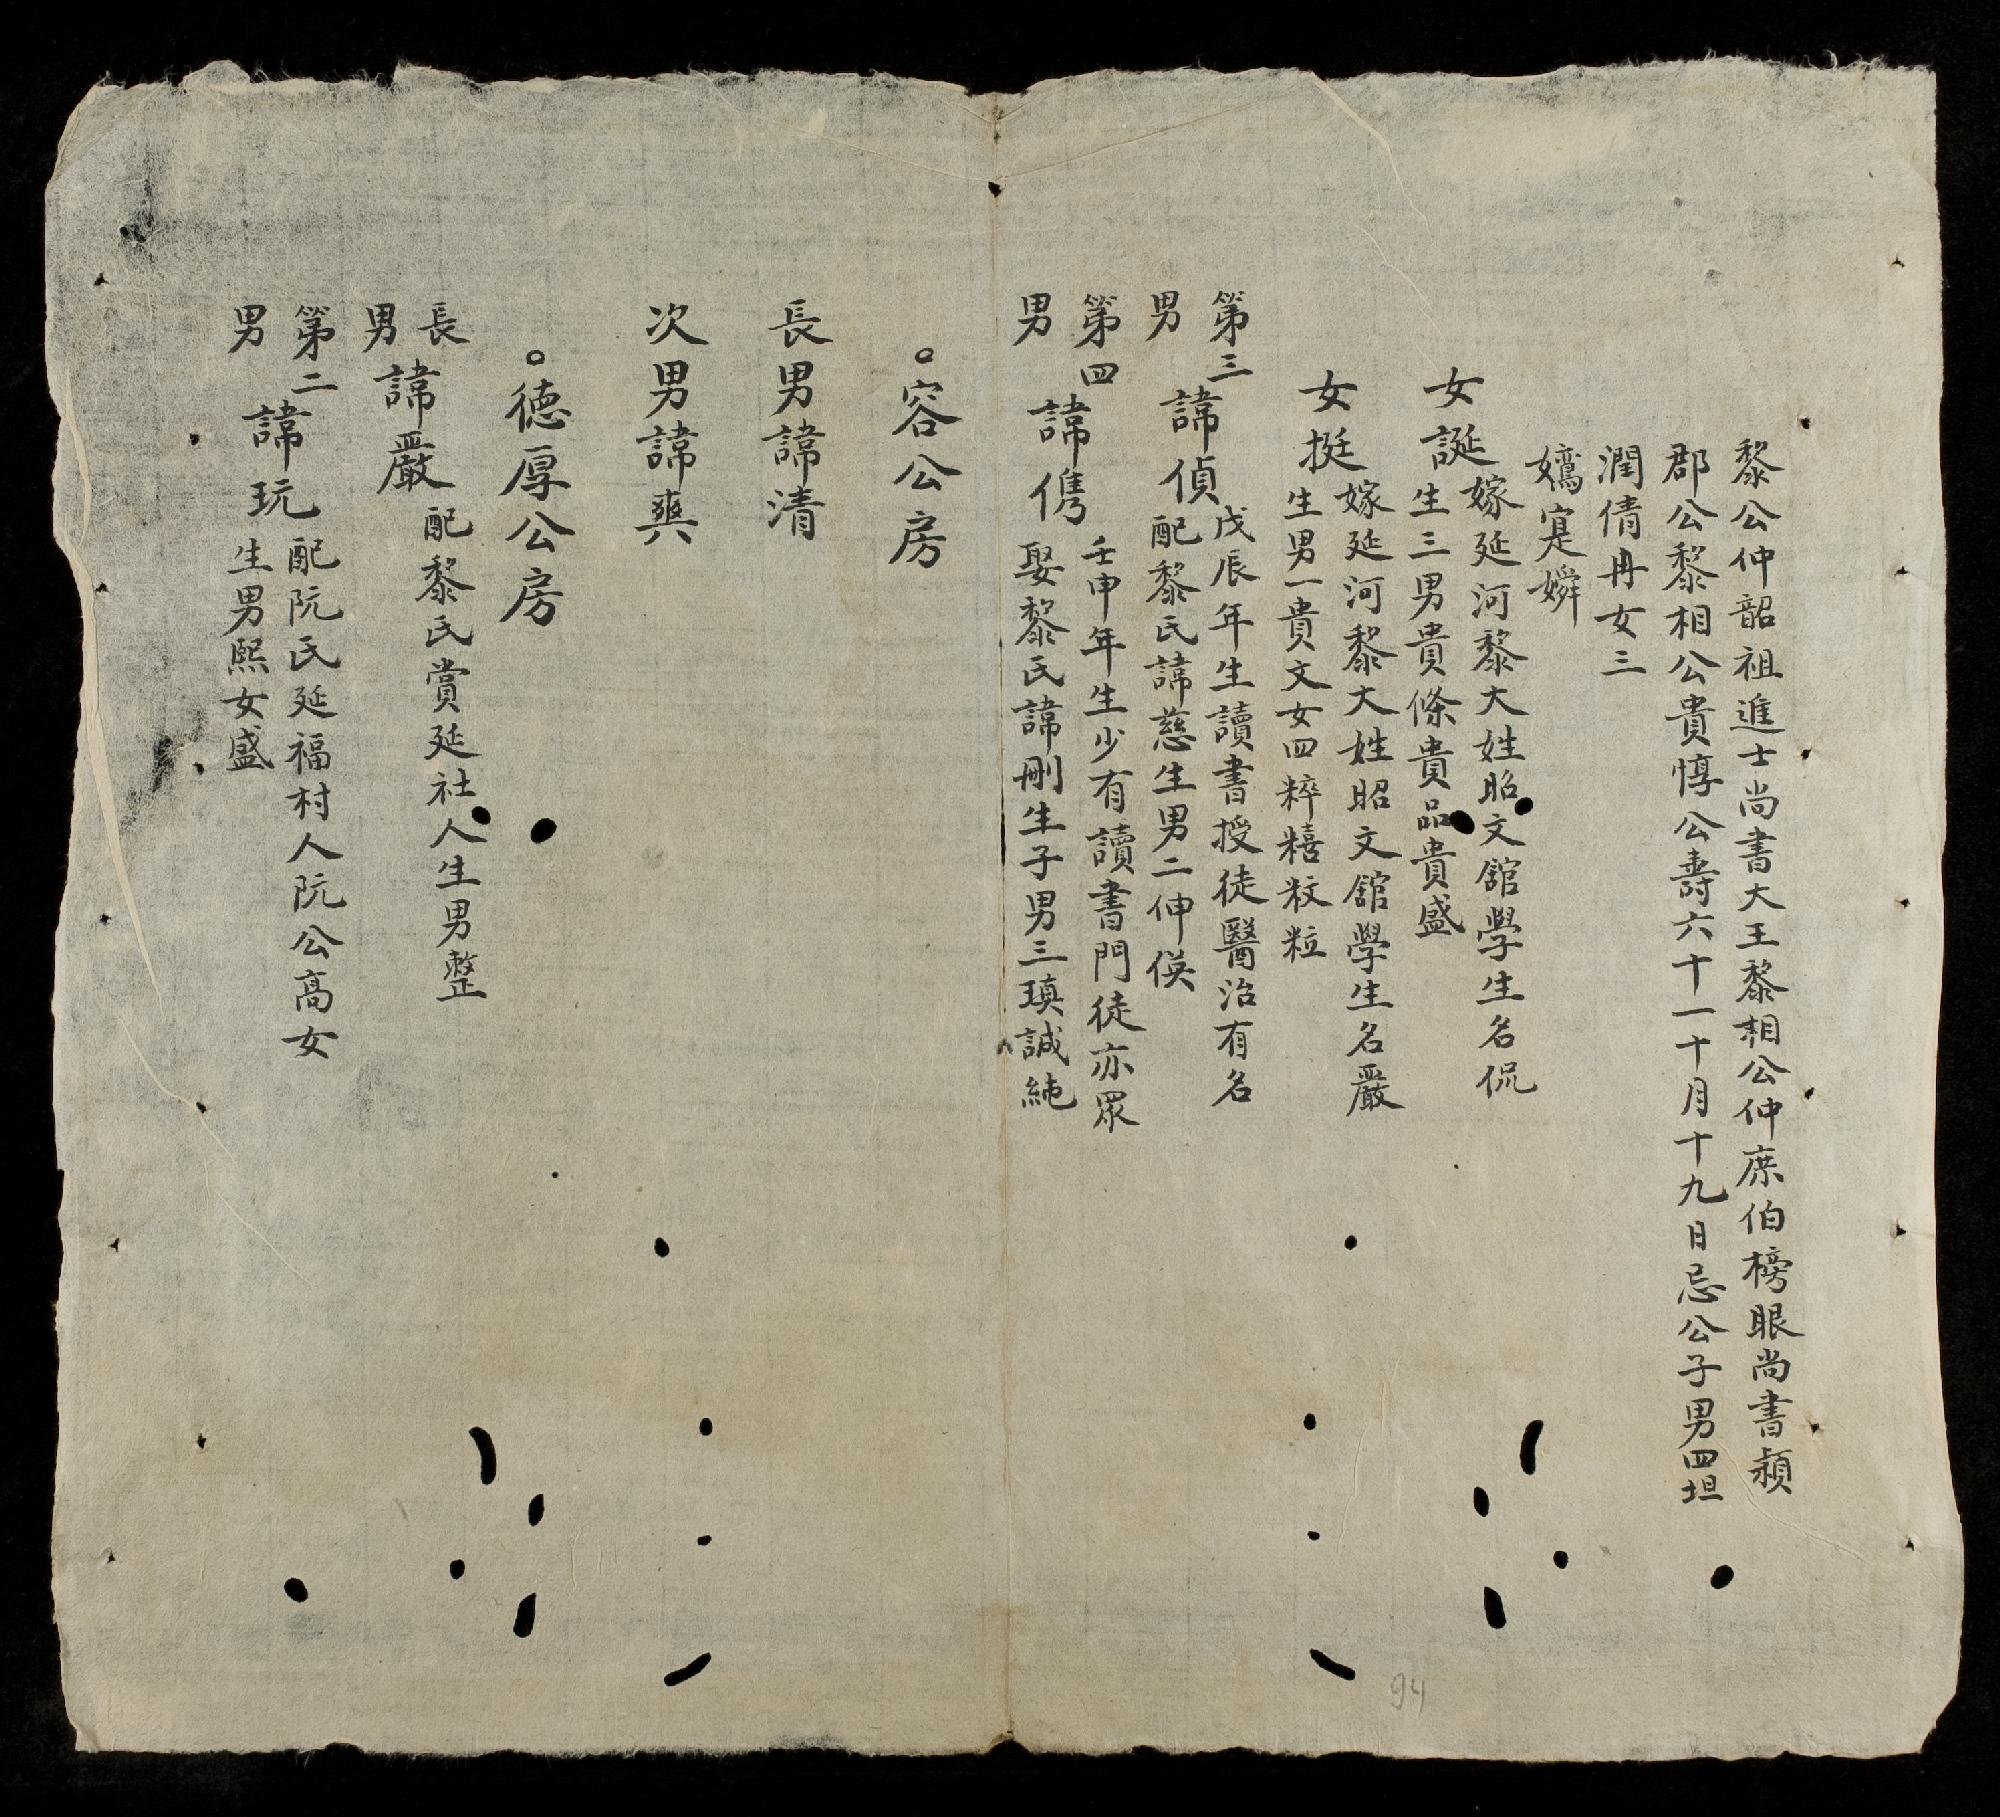 黎公仲韶祖進士尚書大王黎相公仲庶伯榜眼尚書頴
郡公黎相公貴惇公壽六十一十月十九日忌公子男四坦
潤倩冉女三
嬌寔嫾
女誕
嫁延河黎大姓昭文舘學生名侃
生三男貴條貴品貴盛
女挺
嫁延河黎大姓昭文舘學生名嚴
生男一貴文女四粹糦籹粒
第三
男
諱偵
戊辰年生讀書授徒醫治有名
配黎氏諱慈生男二伸偀
第四
男
諱儁
壬申年生少有讀書門徒亦眾
娶黎氏諱刪生子男三瑱誠純
。容公房
長男諱清
次男諱爽
。德厚公房
長
男
諱嚴
配黎氏賞延社人生男整
第二
男
諱玩
配阮氏延福村人阮公高女
生男熙女盛
94